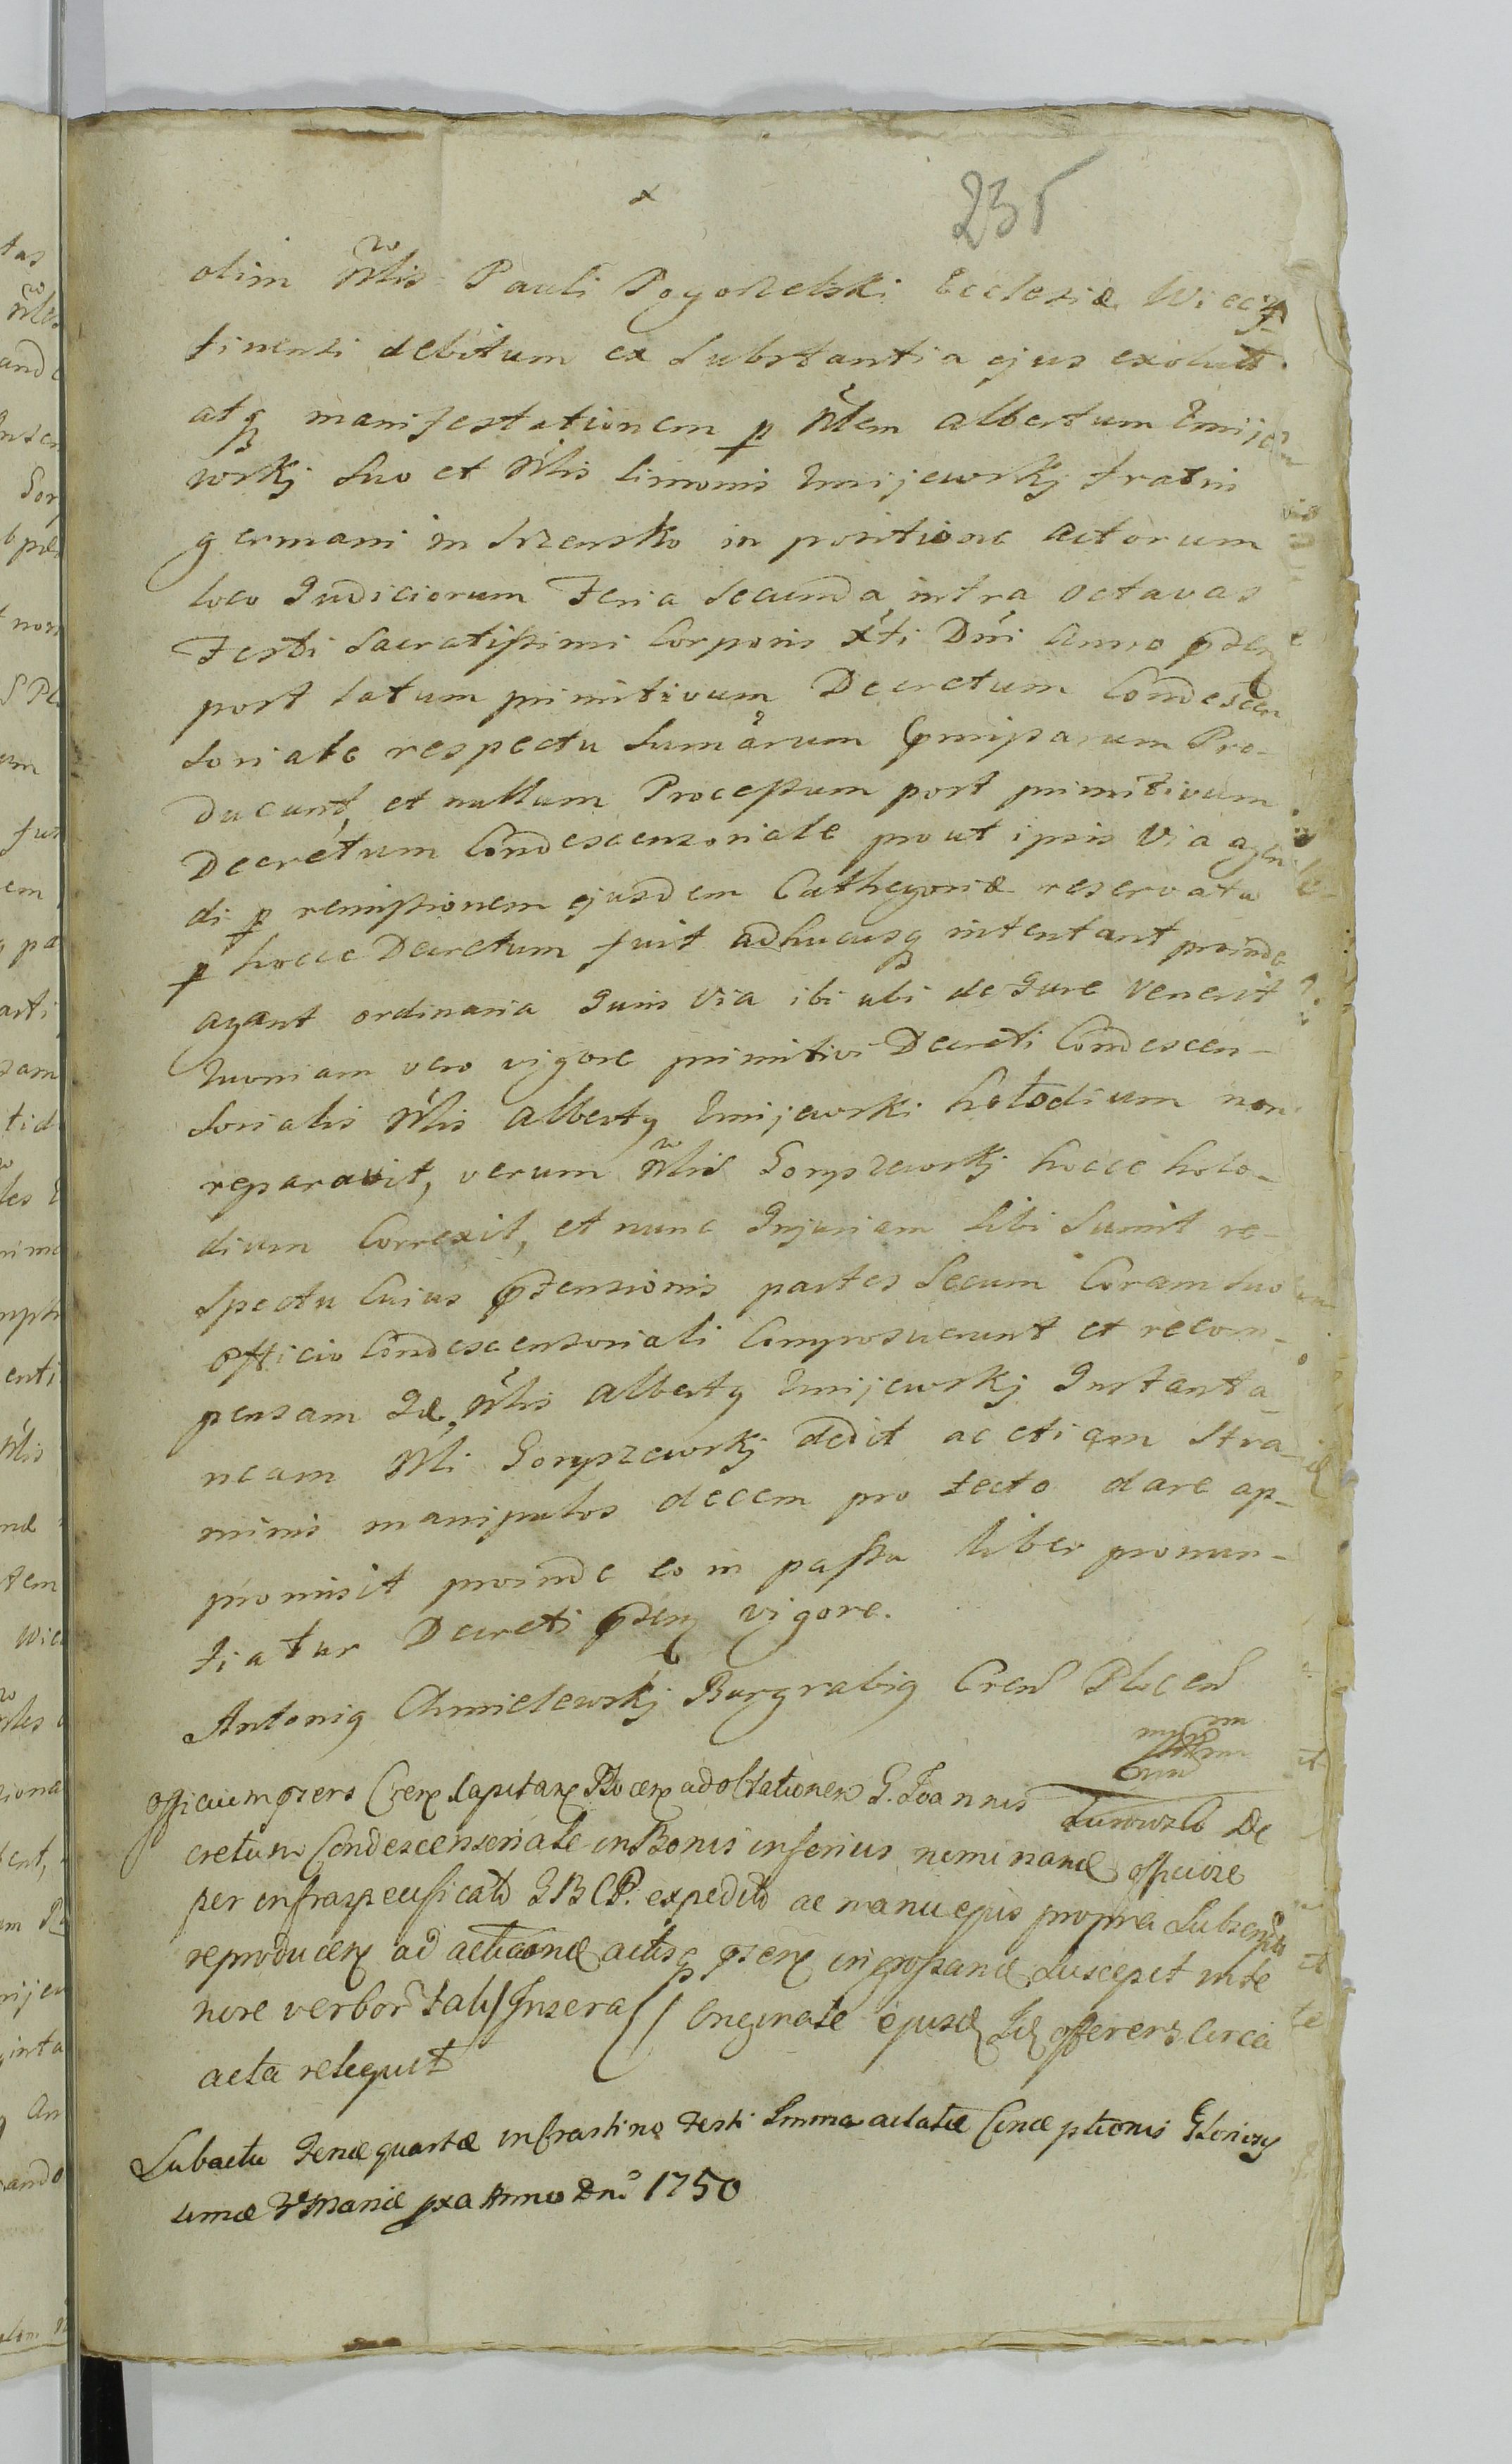 235
olim Mlis Pauli Pogorzelski Ecclesiæ Wiecz
finensi debitum ex Substantia ejus exolutt.
atq manifestationem p Mlem Albertum Zmije
wskj Suo et Mlis Simonis Zmijewskj fratris
germani in Szrensko in positione actorum
loco Judiciorum Feria Secunda intra octavas
Festi Sacratissimi Corporis Xti Dni Anno
post latum primitivum Decretum Condescen
soriale respectu Sumarum Pro-
ducunt, et nullum Processum post primitivum
Decretum Condescensoriale prout ipsis via agen
di p remissionem ejusdem Cathegoriæ reservata
p hocce Decretum fuit adhucusq intentant proinde
agant ordinaria Juris via ibi ubi de Jure venerit
Quoniam vero vigore primitivi Decreti Condescen-
sorialis Mlis Alberty Zmijewski holodium non
reparavit, verum Mlis Goryszewskj hocce holo-
dium Correxit, et nunc Injuriam Sibi Sumit re-
spectu Cuius ptensionis partes Secum Coram Suo
officio Condescensoriali Composuerunt et recom-
pensam Idem Mlis Alberty Zmijewskj Instanta-
neam Mli Goryszewskj dedit ac etiam Stra-
minis manipulos decem pro tecto dare ap-
promisit proinde eo in passu liber pronun-
tiatur Decreti vigore.
Antoniq Chmielewskj Burgrabiq Cren Plocen
Officium Capitan Plocen ad oblationem G. Joannis De
cretum Condescensoriale in Bonis inferius officiose
per infraspecificato G B C P. expedito ac manu ejus propria Subscript
reproducen ad acticand actisq ingrossand Suscepit in te
nore verbor tali Insera Originale ejusd Id offerens circa
acta reliquit
Sub actu Feriæ quartæ in Crastino Festi Immaculatæ Conceptionis Glorioss
imæ V Mariæ pxa Anno Dni 1750